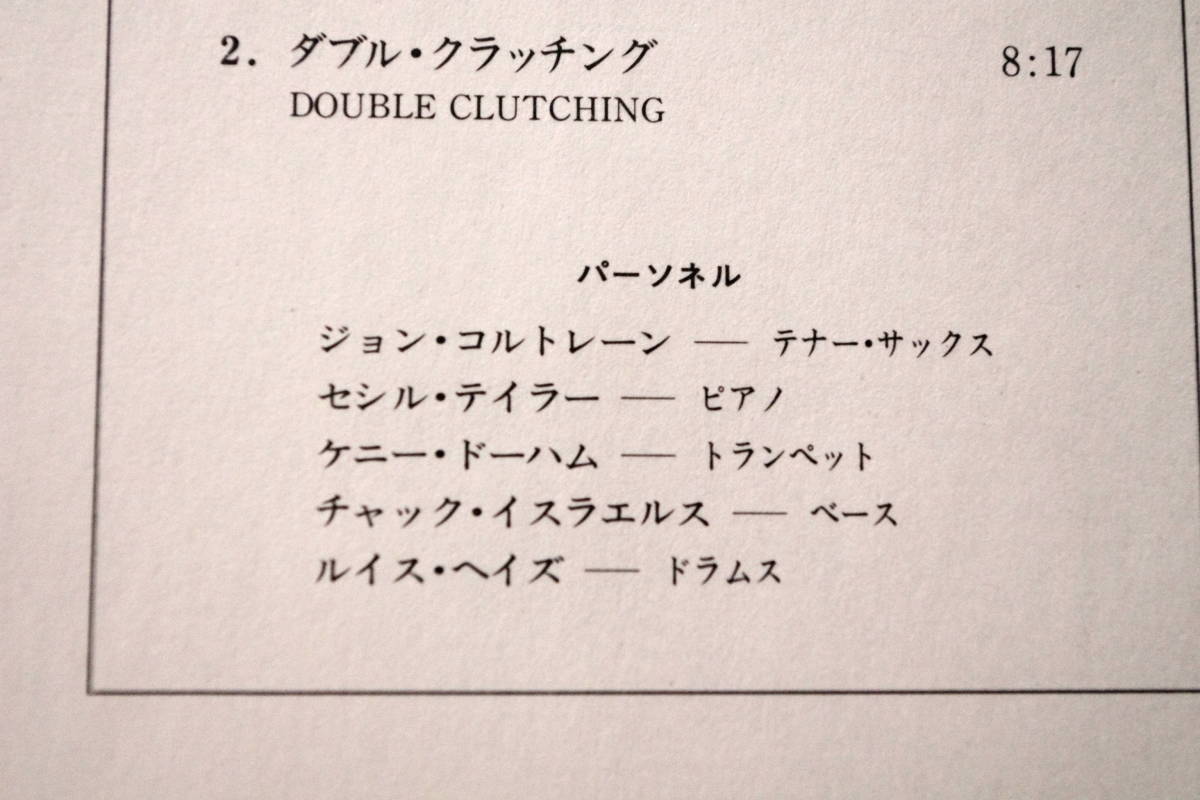 2. ダブル・クラッチング 8:17
DOUBLE CLUTCHING
パーソネル
ジョン・コルトレーン — テナー・サックス
セシル・テイラー — ピアノ
ケニー・ドーハム — トランペット
チャック・イスラエルス — ベース
ルイス・ヘイズ — ドラムス